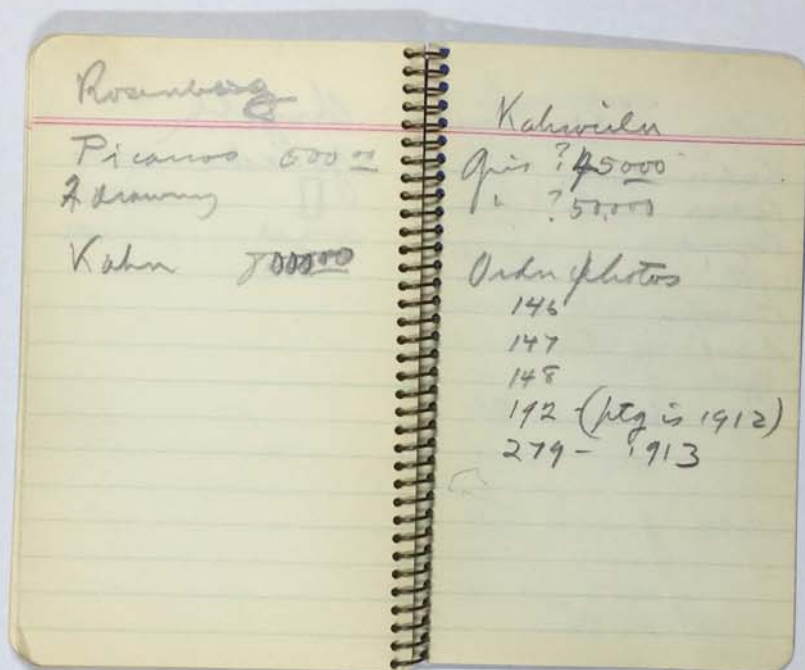 Rosenberg
Picassos 600 00
2 drawing
Kahn
Kahnweiler
Gris ? 45000
" ? 50,000
Order photos
146
147
148
192 - (ptg is 1912)
279 - 1913